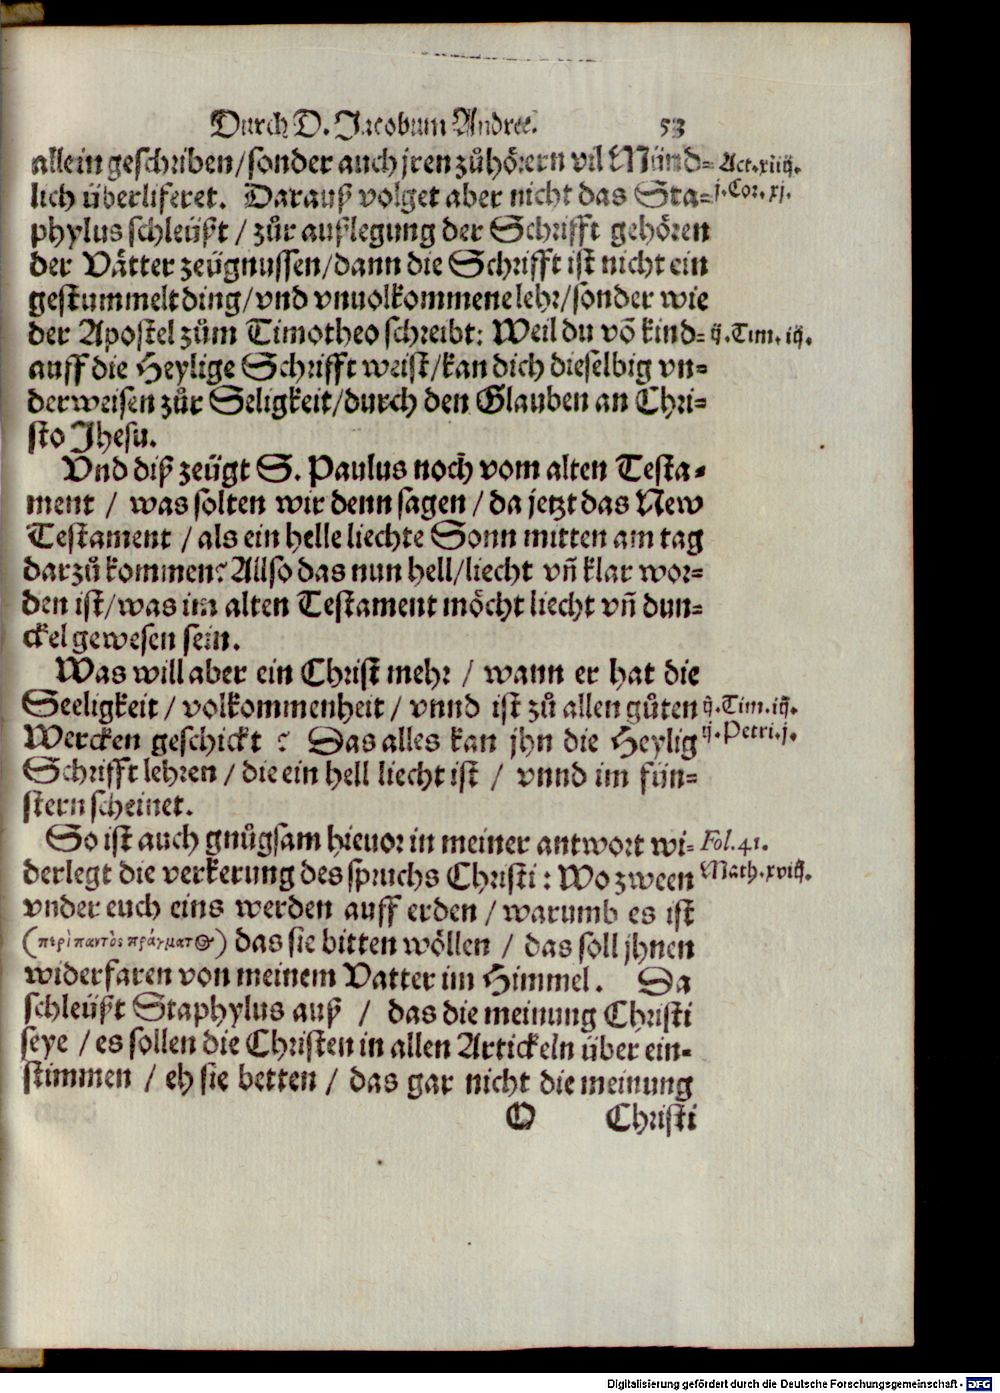 Durch D. Jacobum Andree. 53
allein geschriben/sonder auch jren zůhörern vil Münd= Act.xiiij.
lich überliferet. Darauß volget aber nicht das Sta= j.Cor.xj.
phylus schleüßt / zůr außlegung der Schrifft gehören
der Vätter zeügnussen/dann die Schrifft ist nicht ein
gestummelt ding/vnd vnuolkommene lehr/sonder wie
der Apostel zům Timotheo schreibt: Weil du võ kind= ij.Tim.iij.
auff die Heylige Schrifft weist/kan dich dieselbig vn=
derweisen zůr Seligkeit/durch den Glauben an Chri=
sto Jhesu.
Vnd diß zeügt S. Paulus noch vom alten Testa=
ment / was solten wir denn sagen / da jetzt das New
Testament / als ein helle liechte Sonn mitten am tag
darzů kommen? Allso das nun hell/liecht vñ klar wor=
den ist/was im alten Testament möcht liecht vñ dun=
ckel gewesen sein.
Was will aber ein Christ mehr / wann er hat die
Seeligkeit / volkommenheit / vnnd ist zů allen gůten ij.Tim.iij.
Wercken geschickt ? Das alles kan jhn die Heylig ij.Petri.j.
Schrifft lehren / die ein hell liecht ist / vnnd im fün=
stern scheinet.
So ist auch gnůgsam hieuor in meiner antwort wi= Fol.41.
derlegt die verkerung des spruchs Christi: Wo zween Math.xviij.
vnder euch eins werden auff erden / warumb es ist
(περὶ παντὸς πράγματος) das sie bitten wöllen / das soll jhnen
widerfaren von meinem Vatter im Himmel. Da
schleüßt Staphylus auß / das die meinung Christi
seye / es sollen die Christen in allen Artickeln über ein=
stimmen / eh sie betten / das gar nicht die meinung
O Christi
Digitalisierung gefördert durch die Deutsche Forschungsgemeinschaft - DFG